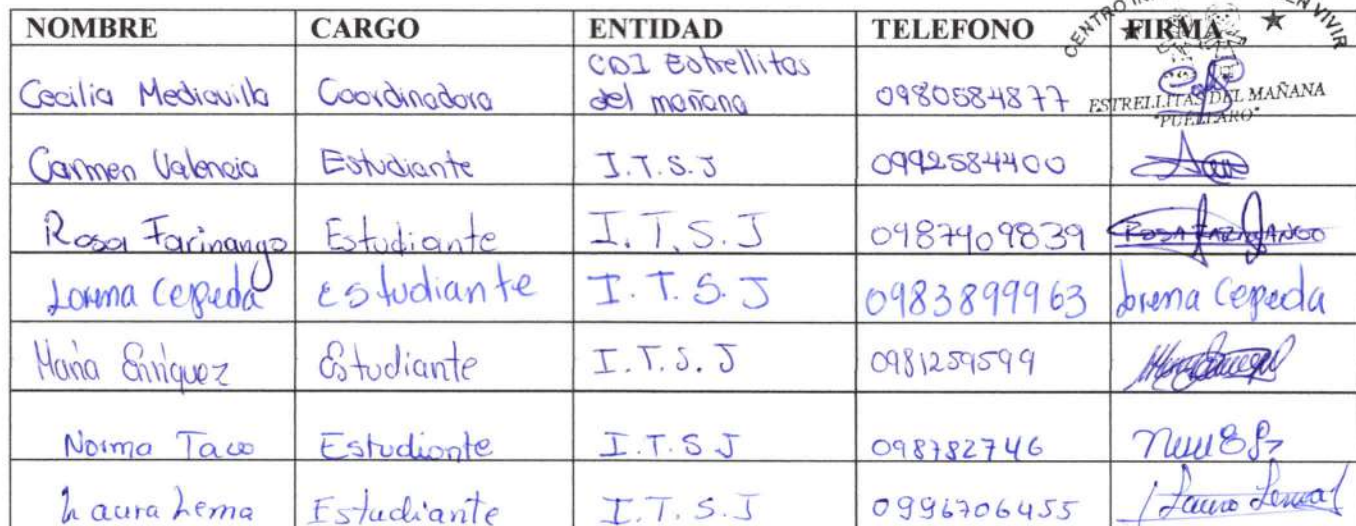 NOMBRE CARGO ENTIDAD TELEFONO FIRMA
Cecilia Mediavilla Coordinadora CDI Estrellitas del mañana 0980584877
CENTRO VIVIR
ESTRELLITAS DEL MAÑANA
"PUÉLLARO"
Carmen Valencia Estudiante I.T.S.J 0992584400
Rosa Farinango Estudiante I.T.S.J 0987409839 ROSA FARINANGO
Lorena Cepeda Estudiante I.T.S.J 0983899963 Lorena Cepeda
María Enríquez Estudiante I.T.S.J 0981259599
Norma Taco Estudiante I.T.S J 098782746
Laura Lema Estudiante I.T.S.J 0996706455 Laura Lema